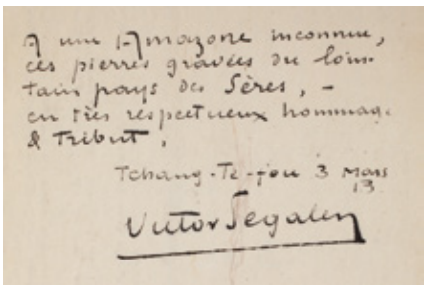 A une Amazone inconnue,
ces pierres gravées du loin-
tain pays des Sères, -
en très respectueux hommage
& Tribut,
Tchang-Té-fou 3 Mars
13
Victor Segalen